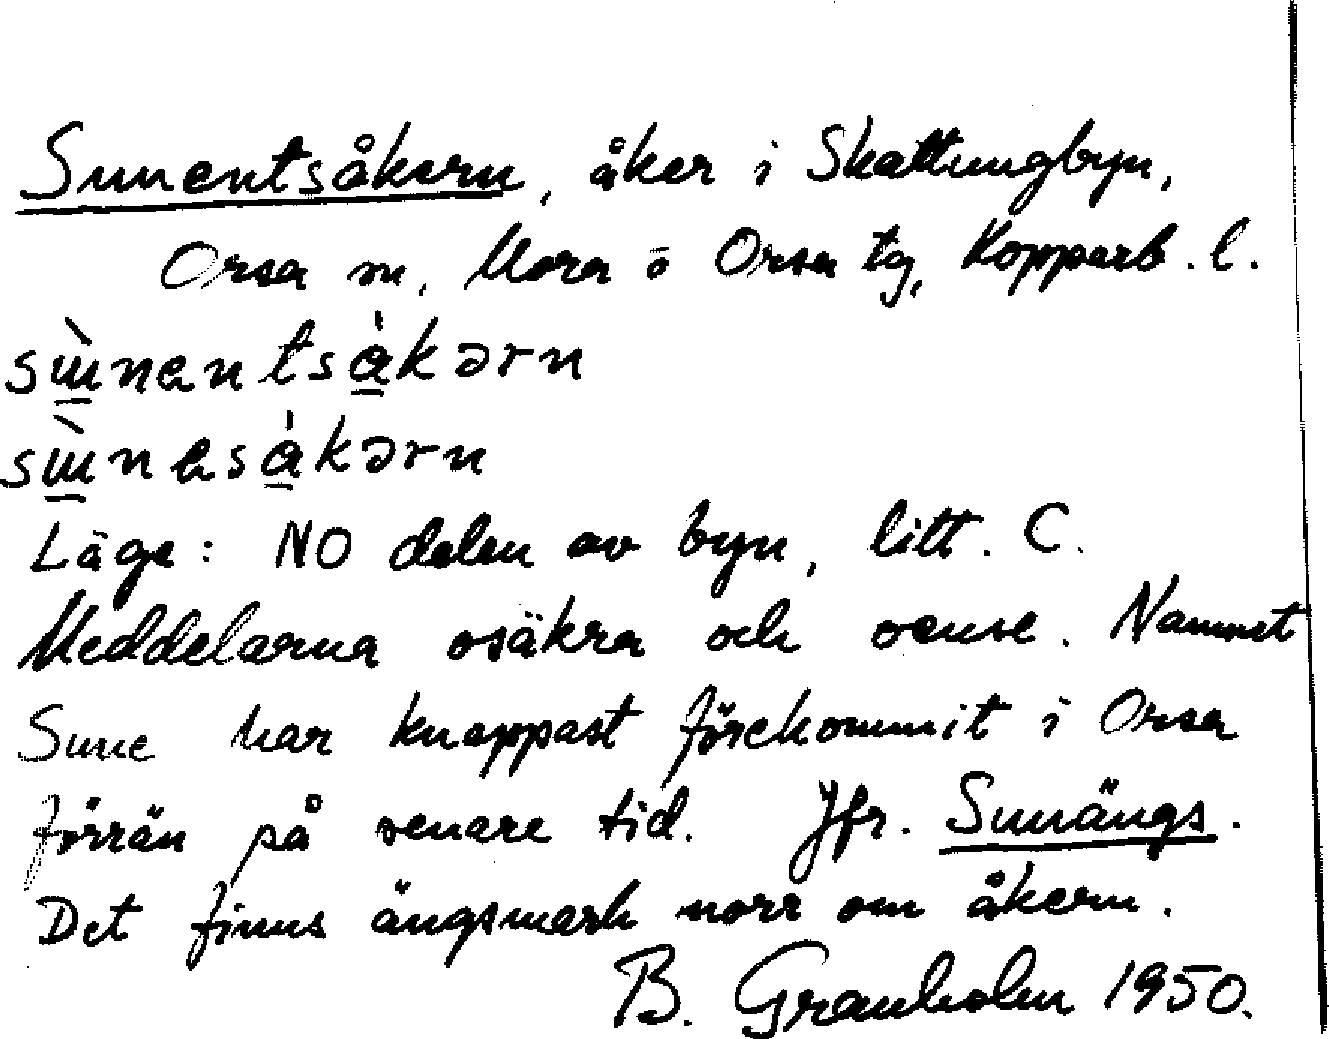 Sunentsåkern, åker i Skattungbyn,
Orsa sn, Mora o Orsa tg, Kopparb. l.
Läge: NO delen av byn, litt. C.
Meddelarna osäkra och oense. Namnet
Sune har knappast förekommit i Orsa
förrän på senare tid. Jfr. Sunängs.
Det finns ängsmark norr om åkern.
B. Granholm 1950.